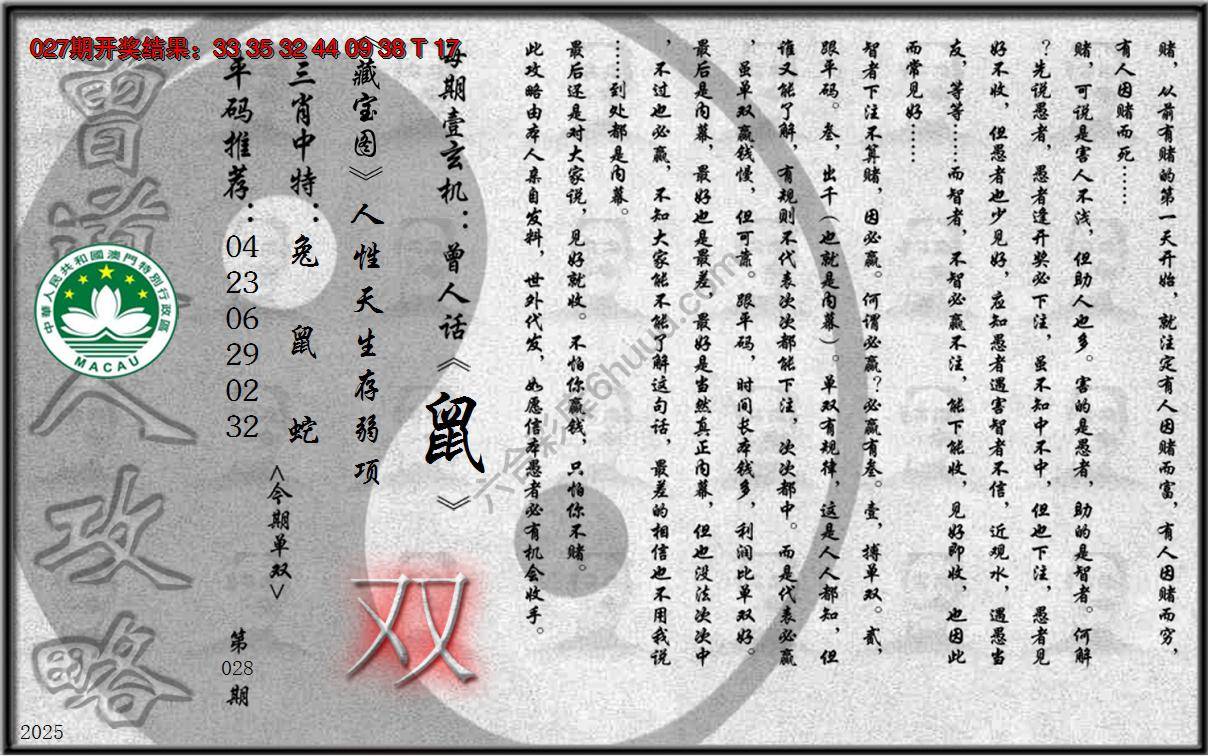 027期开奖结果：33 35 32 44 09 38 T 17
赌，从前有赌的第一天开始，就注定有人因赌而富，有人因赌而穷，
有人因赌而死……
赌，可说是害人不浅，但助人也多。害的是愚者，助的是智者。何解
？先说愚者，愚者逢开奖必下注，虽不知中不中，但也下注，愚者见
好不收，但愚者也少见好，应知愚者遇害智者不信，近观水，遇愚当
友，等等……而智者，不智必赢不注，能下能收，见好即收，也因此
而常见好……
智者下注不算赌，因必赢。何谓必赢？必赢有叁。壹，搏单双。贰，
跟平码。叁，出千（也就是内幕）。单双有规律，这是人人都知，但
谁又能了解，有规则不代表次次都能下注，次次都中。而是代表必赢
，虽单双赢钱慢，但可靠。跟平码，时间长本钱多，利润比单双好。
最后是内幕，最好也是最差，最好是当然真正内幕，但也没法次次中
，不过也必赢，不知大家能不能了解这句话，最差的相信也不用我说
……到处都是内幕。
最后还是对大家说，见好就收。不怕你赢钱，只怕你不赌。
此攻略由本人亲自发料，世外代发，如愿信本愚者必有机会收手。
每期壹玄机：曾人话《鼠》
《藏宝图》人性天生存弱项
双
三肖中特：兔 鼠 蛇
<今期单双>
平码推荐：04 23 06 29 02 32
第028期
曾道人攻略
中華人民共和國澳門特別行政區
MACAU
六合彩库6huuu.com
2025